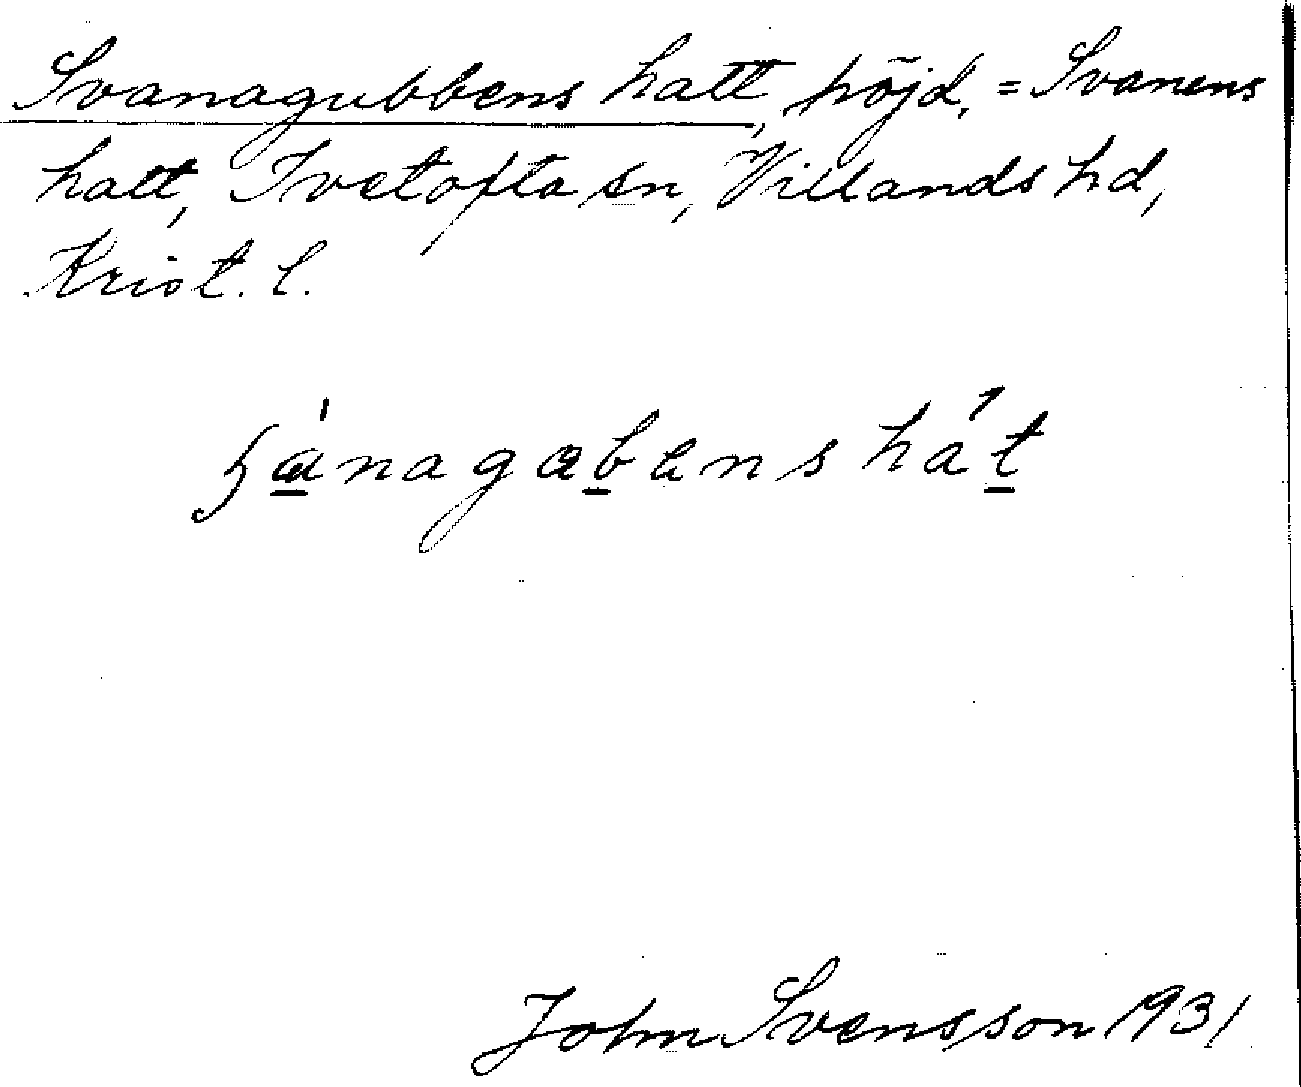 Svanagubbens hatt, höjd, = Svanens
hatt, Ivetofta sn, Villands hd,
Krist. l.
John Svensson 1931